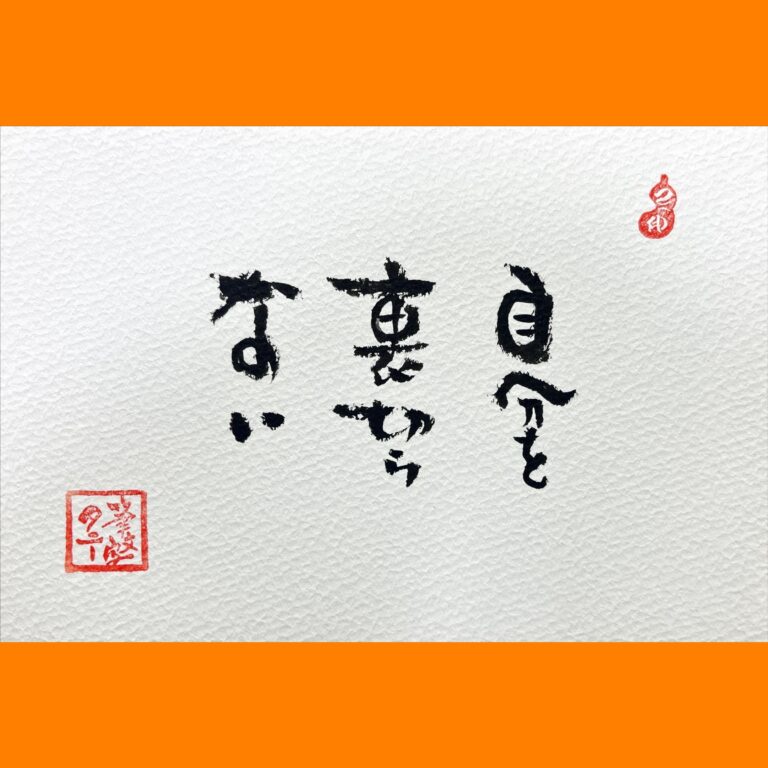 自分を
裏切ら
ない